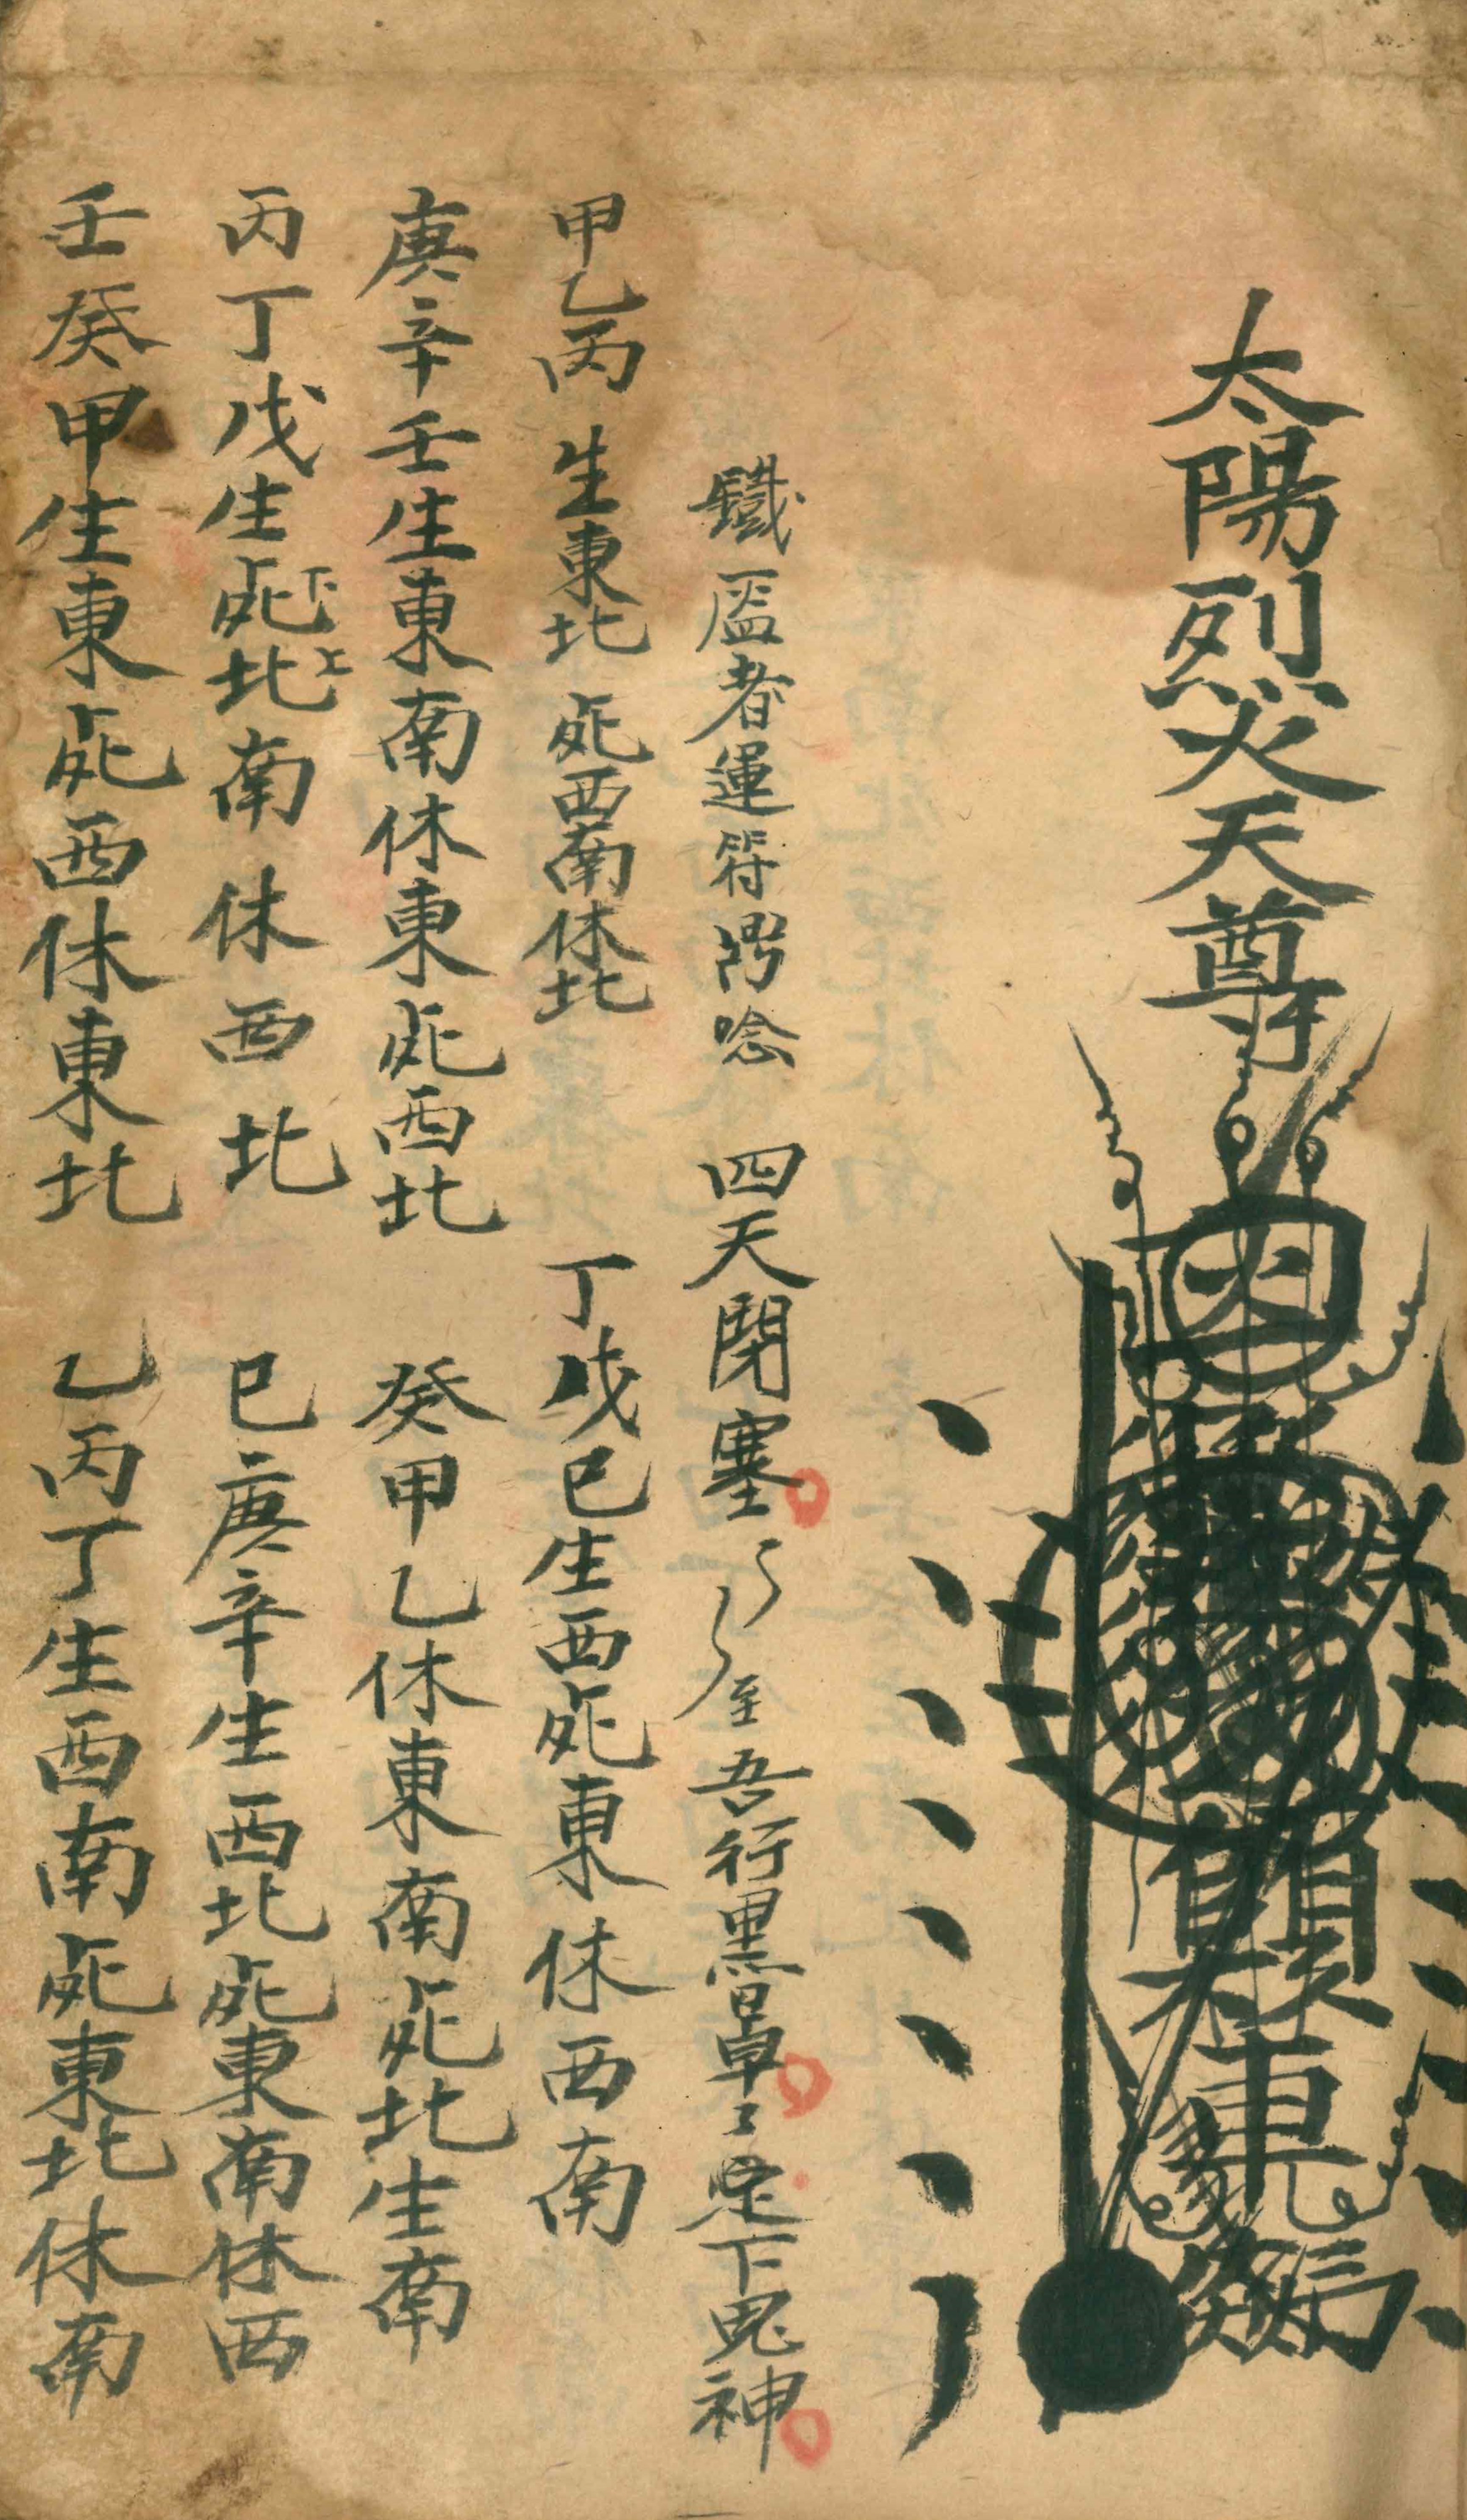 太陽烈火天尊
鐵𥁃者運符濟唸　四天閉塞至吾行黑罩〻定下鬼神
甲乙丙　生東北　𣦸西南休北　丁戊己生西𣦸東休西南
庚辛壬生東南休東𣦸西北　癸甲乙休東南𣦸北生南
丙丁戊生𣦸下北上南休西北　己庚辛生西北𣦸東南休西
壬癸甲生東𣦸西休東北　乙丙丁生西南𣦸東北休南